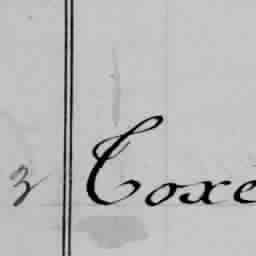 3 Coxe